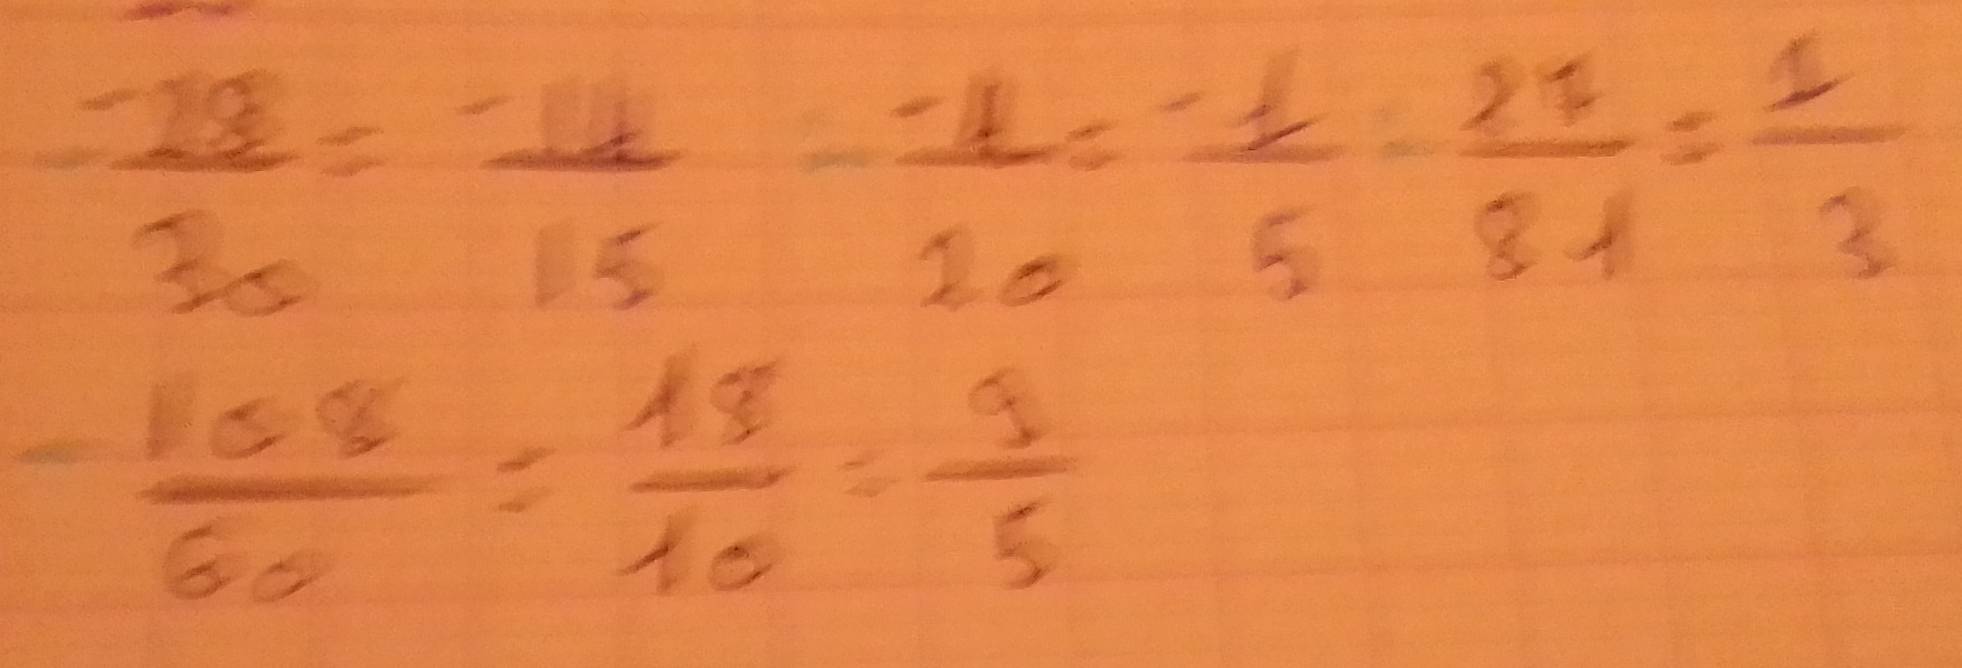 -28/30 = -14/15 - -4/20 = -1/5 - 27/81 = 1/3
- 108/60 = 18/10 = 9/5